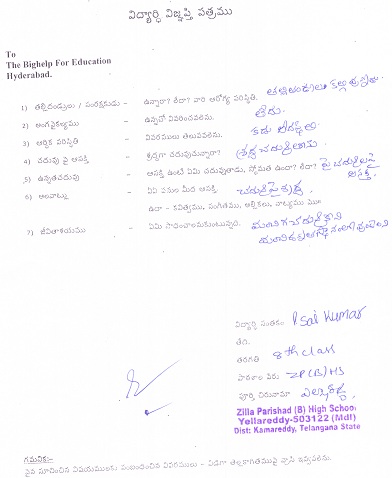 విద్యార్థి విజ్ఞప్తి పత్రము
To
The Bighelp For Education
Hyderabad.
1) తల్లిదండ్రులు / సంరక్షకుడు - ఉన్నారా? లేదా? వారి ఆరోగ్య పరిస్థితి. తల్లిదండ్రులు
2) అంగవైకల్యము - ఉన్నచో వివరించవలెను. లేదు.
3) ఆర్థిక పరిస్థితి - వివరములు తెలుపవలెను. కడు
4) చదువు పై ఆసక్తి - శ్రద్ధగా చదువుచున్నారా? శ్రద్ధ
5) ఉన్నతచదువు - ఆసక్తి ఉంటే ఏమి చదువుతాడు. స్తోమత ఉందా? లేదా? పై చదువులపై ఆసక్తి.
6) అలవాట్లు - ఏఏ పనుల మీద ఆసక్తి. చదువుపై శ్రద్ధ.
ఉదా - కవిత్వము, సంగీతము, అల్లికలు, నాట్యము
7) జీవితాశయము - ఏమి సాధించాలనుకుంటున్నది.
విద్యార్థి సంతకం P. Sai Kumar
తేది.
తరగతి 8th class
పాఠశాల పేరు ZP(B)HS
పూర్తి చిరునామా ఎల్లారెడ్డి
Zilla Parishad (B) High School
Yellareddy-503122 (Mdl)
Dist: Kamareddy, Telangana State
గమనిక:-
పైన సూచించిన విషయములకు సంబంధించిన వివరములు - విడిగా తెల్లకాగితముపై వ్రాసి ఇవ్వవలెను.